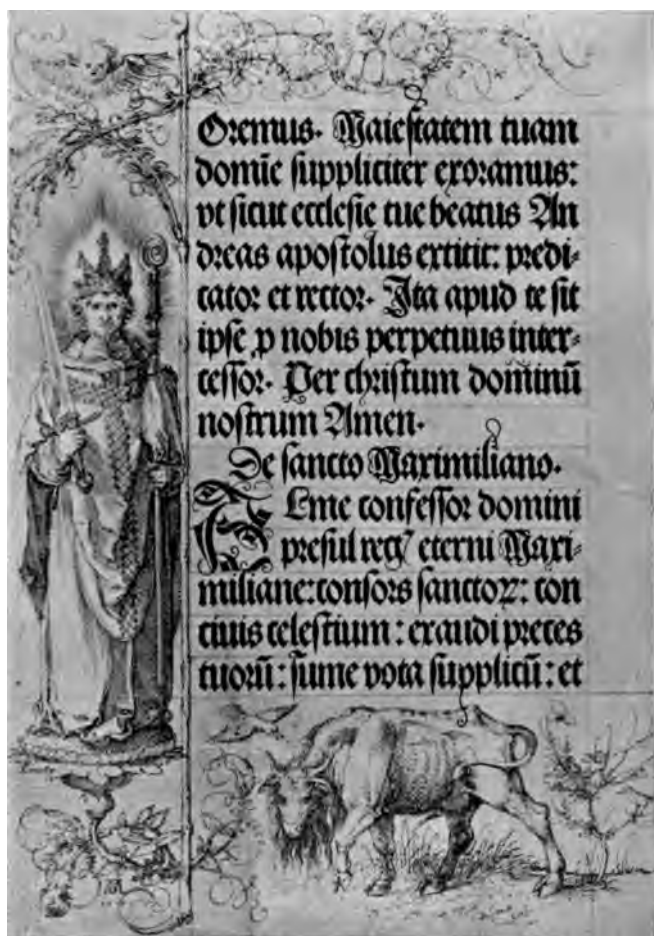 Oremus. Maiestatem tuam
domīe suppliciter exoramus:
vt sicut ecclesie tue beatus An
dreas apostolus extitit: predi-
cator et rector. Ita apud te sit
ipse ꝓ nobis perpetuus inter-
cessor. Per christum dominū
nostrum Amen.
De sancto Maximiliano.
Alme confessor domini
presul regꝭ eterni Maxi-
miliane: consors sanctoꝝ: con
ciuis celestium: exaudi preces
tuorū: sume vota supplicū: et